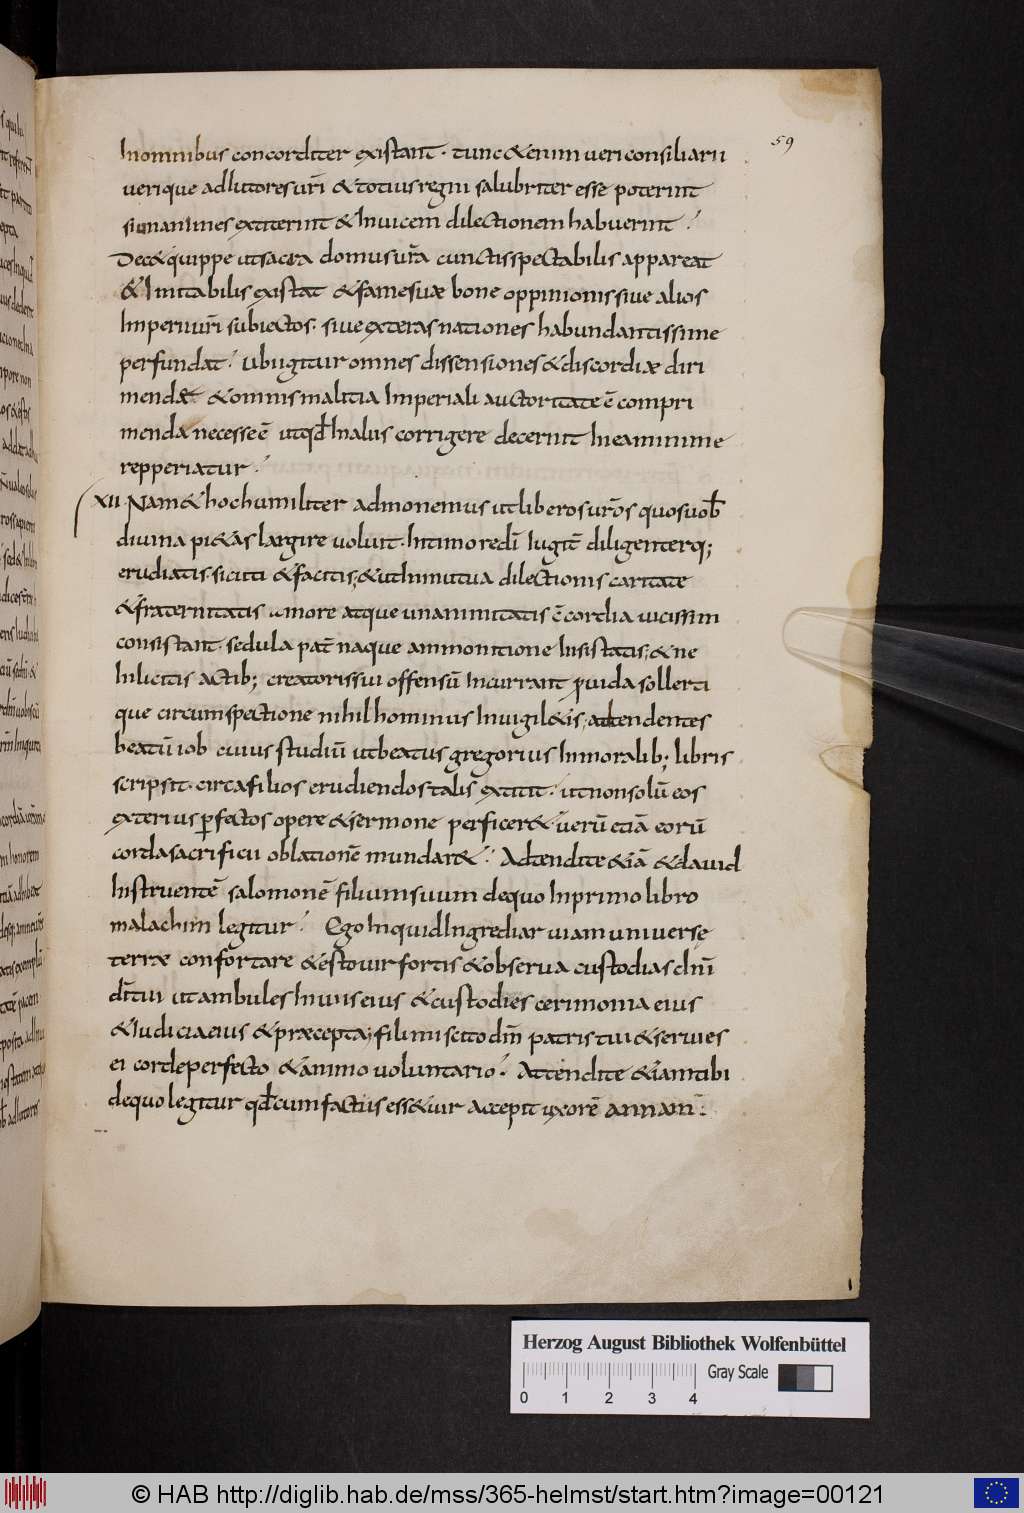 59
In omnibus concorditer existant. tunc & enim veri consiliarii
verique adiutores vr̄i & totius regni salubriter esse poterint
si unanimes extiterint & Invicem dilectionem habuerint.
Dec& quippe ut sacra domus vr̄a cunctis spectabilis appareat
& Imitabilis existat & famesuæ bone oppinionis sive alios
Imperii vr̄i subiectos. sive exteras nationes habundantissime
perfundat. Ubi igitur omnes dissensiones & discordiæ diri
mendæ & omnis malitia Imperiali auctoritate ē compri
menda necesse ē ut qđ In aliis corrigere decernit In ea minime
repperiatur.
XII. Nam & hoc humiliter admonemus ut liberos vr̄os quos vob̄
divina pi&as largire voluit. In timore dī Iugit̄ diligenterq;
erudiatis. sicuti & facitis; & ut In mutua dilectionis caritate
& fraternitatis amore atque unanimitatis c̄cordia vicissim
consistant. sedula pat̄na que ammonitione Insistatis; & ne
Inlicitis actib; creatoris sui offensū Incurrant pvida sollerti
que circumspectione nihilhominus Invigil&is; attendentes
beatū iob cuius studiū ut beatus gregorius In moralib; libris
scripsit. circa filios erudiendos talis extitit. ut non solū eos
exterius pfectos opere & sermone perficer&. verū etiā eorū
corda sacrificii oblationē mundar&. Adtendite &iā & david
Instruentē salomonē filium suum de quo In primo libro
malachim legitur. Ego Inquid Ingrediar viam universe
terræ confortare & esto vir fortis & observa custodias dn̄i
dī tui ut ambules In viis eius & custodies cerimonia eius
& Iudicia eius & præcepta; fili mi scito dm̄ patris tui & servies
ei corde perfecto & animo voluntario. Attendite &iam tibi
de quo legitur qđ cum factus ess& vir accepit uxorē annam.
Herzog August Bibliothek Wolfenbüttel
Gray Scale
0 1 2 3 4
© HAB http://diglib.hab.de/mss/365-helmst/start.htm?image=00121